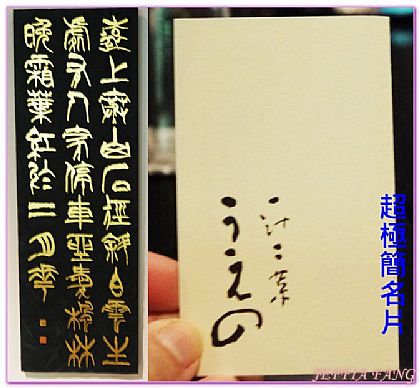 遠上寒山石徑斜白雲生
處有人家停車坐愛楓林
晚霜葉紅於二月花
一汁二菜
うえの
超極簡名片
JETTIA FANG